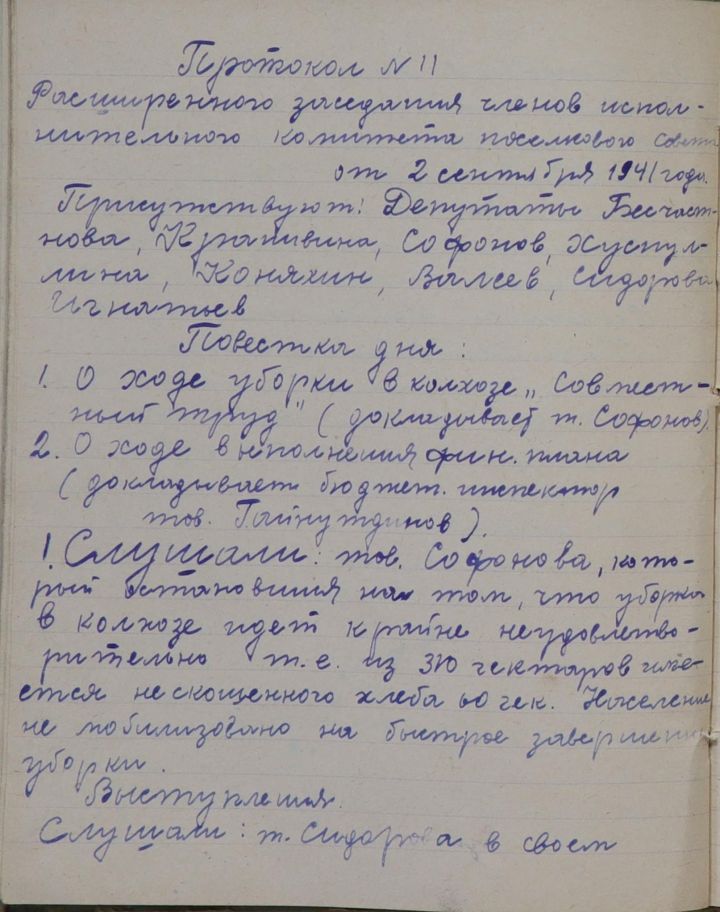 Протокол N 11
Расширенного заседания членов испол-
нительного комитета поселкового совета
от 2 сентября 1941 года.
Присутствуют: Депутаты Бесчаст-
нова, Крапивина, Софонов, Хуснул-
лина, Коняхин, Валеев, Сидорова
Игнатьев
Повестка дня:
1. О ходе уборки в колхозе „Совмест-
ный труд" (докладывает т. Софонов).
2. О ходе выполнения фин. плана
(докладывает бюджет. инспектор
тов. Гайнутдинов).
1. Слушали: тов. Софонова, кото-
рый остановился на том, что уборка
в колхозе идет крайне неудовлетво-
рительно т.е. из 310 гектаров име-
ется нескошенного хлеба 60 гек. Население
не мобилизовано на быстрое завершение
уборки.
Выступления.
Слушали: т. Сидорова в своем